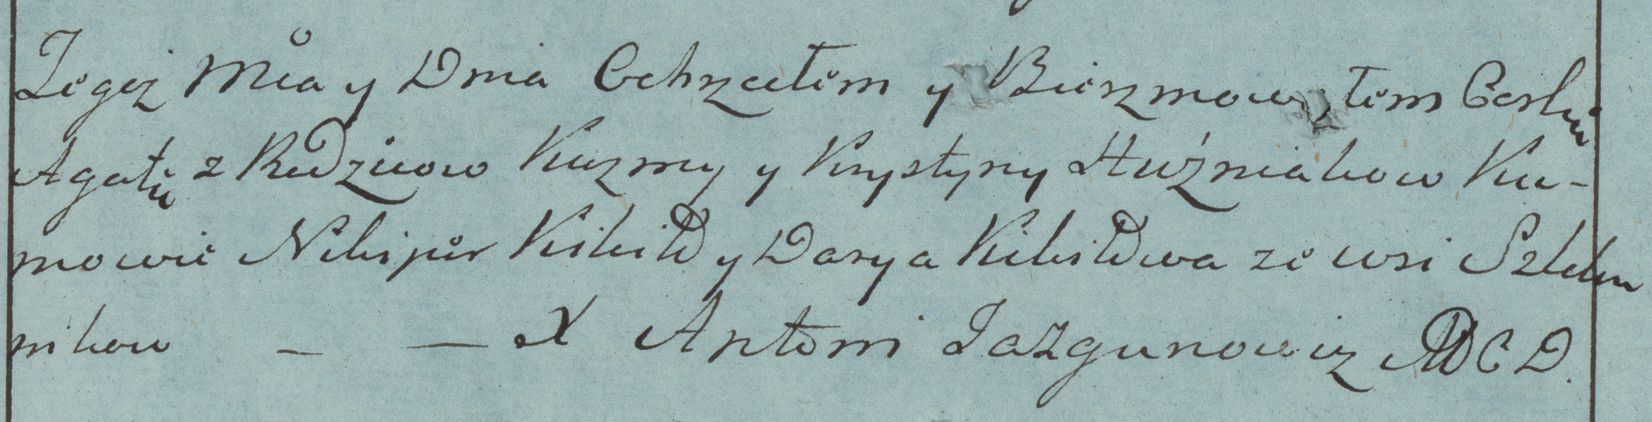 Tegoż Mca y Dnia Ochrzciłem y Bierzmowałem Corku
Agatu z Rodzicow Kuzmy y Krystyny Huźniakow Ku-
mowie Nikipor Kikiłd y Darya Kikiłdwa ze wsi Szklen
nikow — — X Antoni Jazgunowicz MDCD.